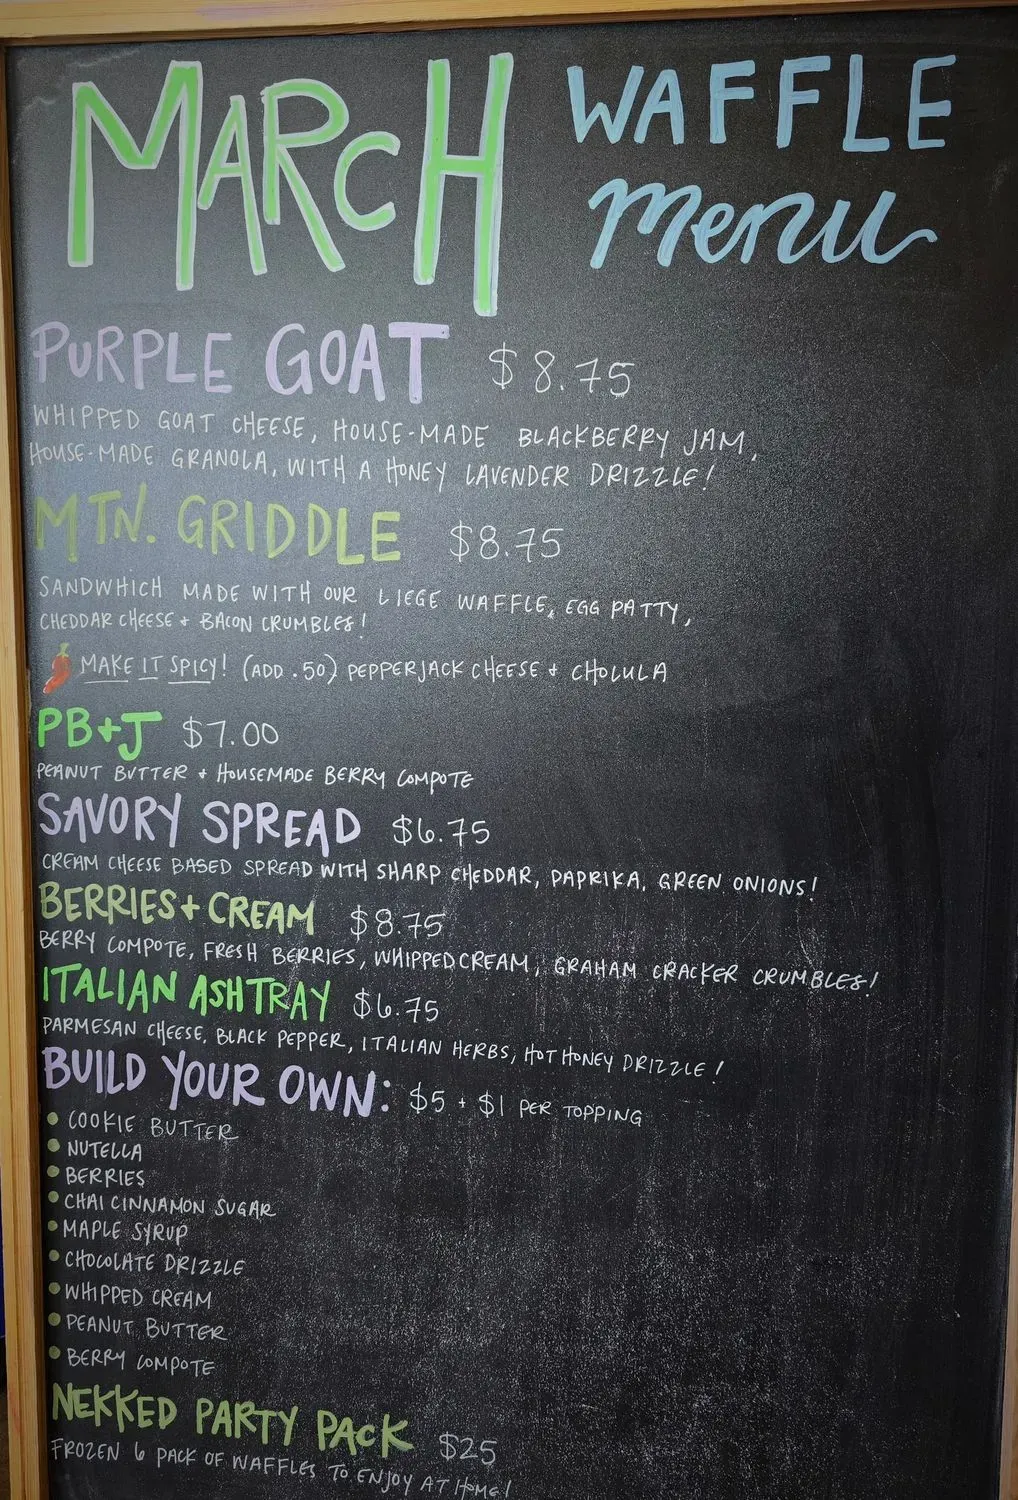 MARCH WAFFLE
menu
PURPLE GOAT $8.75
WHIPPED GOAT CHEESE, HOUSE-MADE BLACKBERRY JAM,
HOUSE-MADE GRANOLA, WITH A HONEY LAVENDER DRIZZLE!
MTN. GRIDDLE $8.75
SANDWHICH MADE WITH OUR LIEGE WAFFLE, EGG PATTY,
CHEDDAR CHEESE + BACON CRUMBLES!
MAKE IT SPICY! (ADD .50) PEPPERJACK CHEESE + CHOLULA
PB+J $7.00
PEANUT BUTTER + HOUSEMADE BERRY COMPOTE
SAVORY SPREAD $6.75
CREAM CHEESE BASED SPREAD WITH SHARP CHEDDAR, PAPRIKA, GREEN ONIONS!
BERRIES + CREAM $8.75
BERRY COMPOTE, FRESH BERRIES, WHIPPED CREAM, GRAHAM CRACKER CRUMBLES!
ITALIAN ASHTRAY $6.75
PARMESAN CHEESE, BLACK PEPPER, ITALIAN HERBS, HOT HONEY DRIZZLE!
BUILD YOUR OWN: $5 + $1 PER TOPPING
• COOKIE BUTTER
• NUTELLA
• BERRIES
• CHAI CINNAMON SUGAR
• MAPLE SYRUP
• CHOCOLATE DRIZZLE
• WHIPPED CREAM
• PEANUT BUTTER
• BERRY COMPOTE
NEKKED PARTY PACK $25
FROZEN 6 PACK OF WAFFLES TO ENJOY AT HOME!